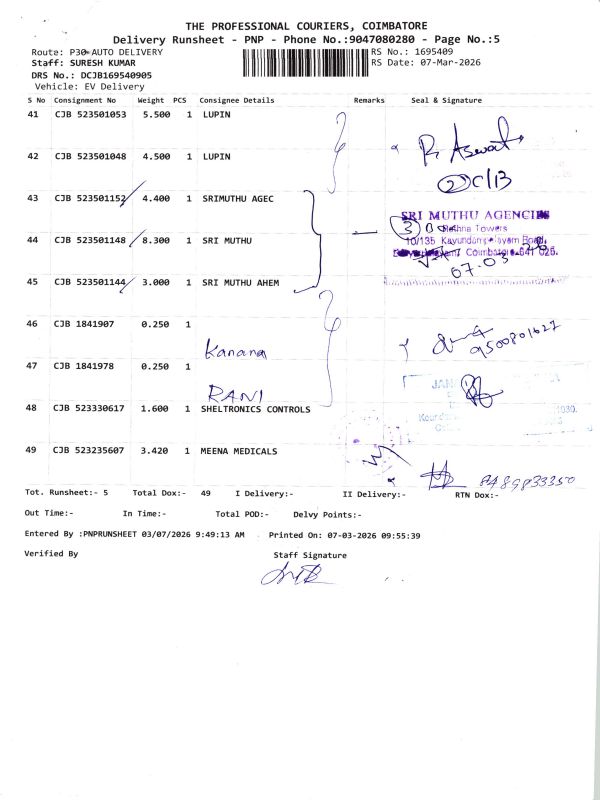 THE PROFESSIONAL COURIERS, COIMBATORE
Delivery Runsheet - PNP - Phone No.:9047080280 - Page No.:5
Route: P30-AUTO DELIVERY RS No.: 1695409
Staff: SURESH KUMAR RS Date: 07-Mar-2026
DRS No.: DCJB169540905
Vehicle: EV Delivery
S No Consignment No Weight PCS Consignee Details Remarks Seal & Signature
41 CJB 523501053 5.500 1 LUPIN
R Aswat
42 CJB 523501048 4.500 1 LUPIN
43 CJB 523501152 4.400 1 SRIMUTHU AGEC
SRI MUTHU AGENCIES
3 Rathna Towers
44 CJB 523501148 8.300 1 SRI MUTHU
10/135 Kavundampalayam Road,
Coimbatore-641 026.
07.03
45 CJB 523501144 3.000 1 SRI MUTHU AHEM
46 CJB 1841907 0.250 1
Kanana
9500801627
47 CJB 1841978 0.250 1
RANI
48 CJB 523330617 1.600 1 SHELTRONICS CONTROLS
49 CJB 523235607 3.420 1 MEENA MEDICALS
8489833350
Tot. Runsheet:- 5 Total Dox:- 49 I Delivery:- II Delivery:- RTN Dox:-
Out Time:- In Time:- Total POD:- Delvy Points:-
Entered By :PNPRUNSHEET 03/07/2026 9:49:13 AM Printed On: 07-03-2026 09:55:39
Verified By Staff Signature